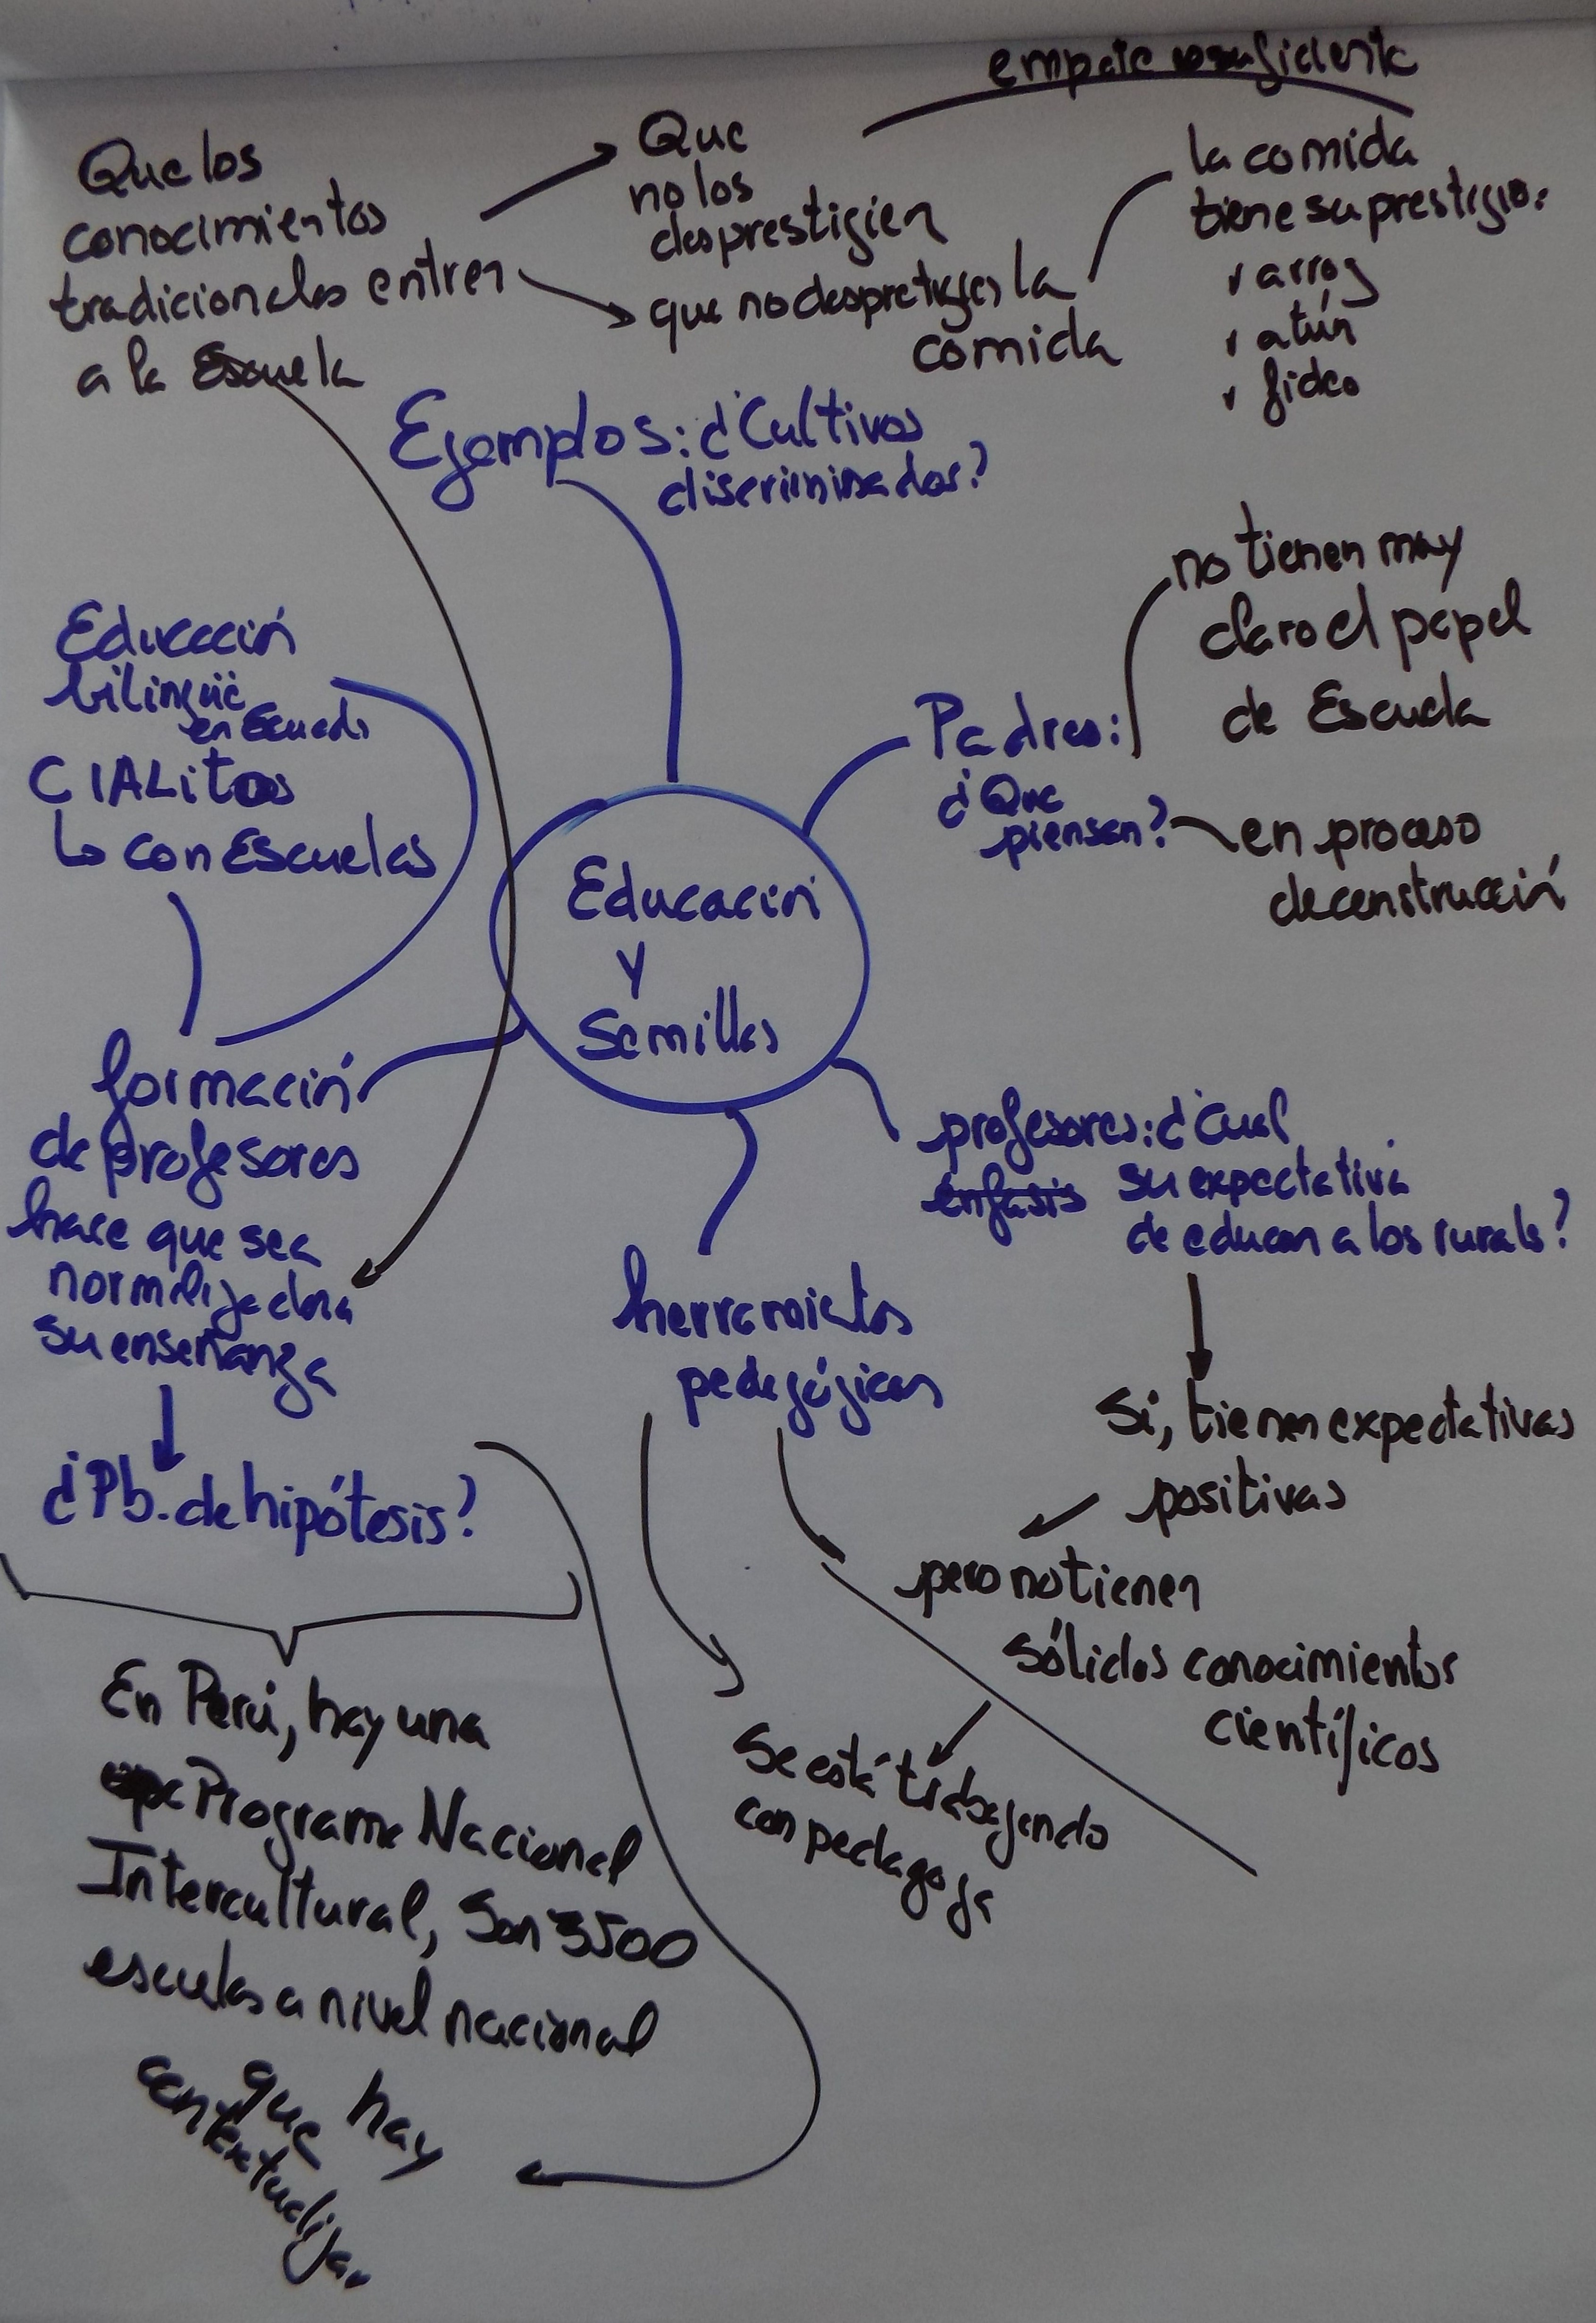 Que los
conocimientos
tradicionales entren
a la Escuela
Que
no los
desprestigien
que no
la
comida
la comida
tiene su prestigio:
arroz
atún
fideo
Ejemplos: ¿Cultivos
discriminados?
Educación
bilingüe
en
CIALitos
↳ con Escuelas
Educación
y
Semillas
Padres:
¿Que
piensan?
no tienen muy
claro el papel
de Escuela
en proceso
formación
de profesores
hace que sea
normalizadora
su enseñanza
¿Pb. de hipótesis?
profesores: ¿Cual
énfasis su expectativa
de educan a los rurals?
Si, tienen expectativas
positivas
pero no tienen
sólidos conocimientos
científicos
herramientas
pedagógicas
Se está trabajando
con
En Perú, hay una
Programa Nacional
Intercultural, Son 3500
escuelas a nivel nacional
que hay
contextualizar